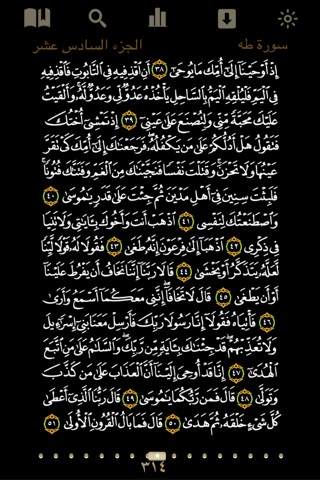 سورة طه الجزء السادس عشر
إِذْ أَوْحَيْنَا إِلَىٰ أُمِّكَ مَا يُوحَىٰ ٣٨ أَنِ اقْذِفِيهِ فِي التَّابُوتِ فَاقْذِفِيهِ
فِي الْيَمِّ فَلْيُلْقِهِ الْيَمُّ بِالسَّاحِلِ يَأْخُذْهُ عَدُوٌّ لِّي وَعَدُوٌّ لَّهُ ۚ وَأَلْقَيْتُ
عَلَيْكَ مَحَبَّةً مِّنِّي وَلِتُصْنَعَ عَلَىٰ عَيْنِي ٣٩ إِذْ تَمْشِي أُخْتُكَ
فَتَقُولُ هَلْ أَدُلُّكُمْ عَلَىٰ مَن يَكْفُلُهُ ۖ فَرَجَعْنَاكَ إِلَىٰ أُمِّكَ كَيْ تَقَرَّ
عَيْنُهَا وَلَا تَحْزَنَ ۚ وَقَتَلْتَ نَفْسًا فَنَجَّيْنَاكَ مِنَ الْغَمِّ وَفَتَنَّاكَ فُتُونًا ۚ
فَلَبِثْتَ سِنِينَ فِي أَهْلِ مَدْيَنَ ثُمَّ جِئْتَ عَلَىٰ قَدَرٍ يَا مُوسَىٰ ٤٠
وَاصْطَنَعْتُكَ لِنَفْسِي ٤١ اذْهَبْ أَنتَ وَأَخُوكَ بِآيَاتِي وَلَا تَنِيَا
فِي ذِكْرِي ٤٢ اذْهَبَا إِلَىٰ فِرْعَوْنَ إِنَّهُ طَغَىٰ ٤٣ فَقُولَا لَهُ قَوْلًا لَّيِّنًا
لَّعَلَّهُ يَتَذَكَّرُ أَوْ يَخْشَىٰ ٤٤ قَالَا رَبَّنَا إِنَّنَا نَخَافُ أَن يَفْرُطَ عَلَيْنَا
أَوْ أَن يَطْغَىٰ ٤٥ قَالَ لَا تَخَافَا ۖ إِنَّنِي مَعَكُمَا أَسْمَعُ وَأَرَىٰ
٤٦ فَأْتِيَاهُ فَقُولَا إِنَّا رَسُولَا رَبِّكَ فَأَرْسِلْ مَعَنَا بَنِي إِسْرَائِيلَ
وَلَا تُعَذِّبْهُمْ ۖ قَدْ جِئْنَاكَ بِآيَةٍ مِّن رَّبِّكَ ۖ وَالسَّلَامُ عَلَىٰ مَنِ اتَّبَعَ
الْهُدَىٰ ٤٧ إِنَّا قَدْ أُوحِيَ إِلَيْنَا أَنَّ الْعَذَابَ عَلَىٰ مَن كَذَّبَ
وَتَوَلَّىٰ ٤٨ قَالَ فَمَن رَّبُّكُمَا يَا مُوسَىٰ ٤٩ قَالَ رَبُّنَا الَّذِي أَعْطَىٰ
كُلَّ شَيْءٍ خَلْقَهُ ثُمَّ هَدَىٰ ٥٠ قَالَ فَمَا بَالُ الْقُرُونِ الْأُولَىٰ ٥١
٣١٤